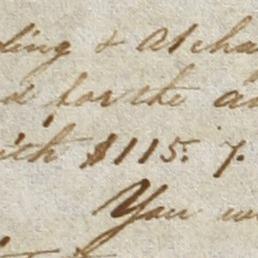 ding & Atcha
d for the a
ith $115. 7.
You w